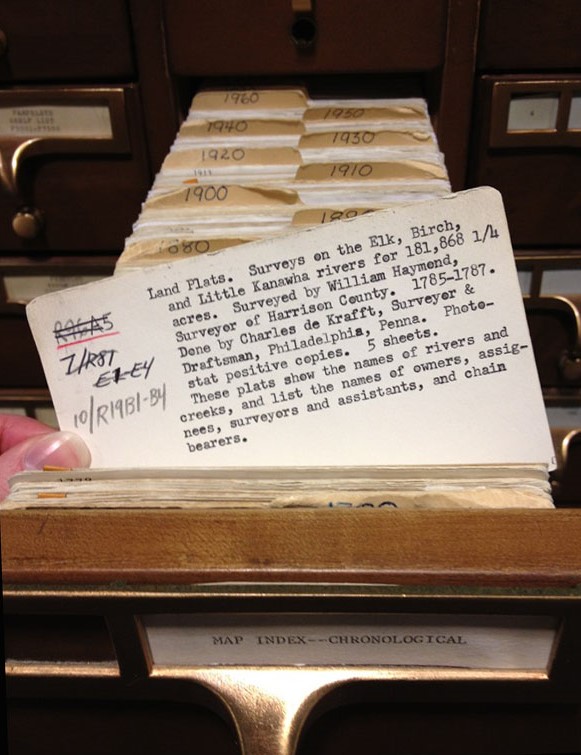 1960
1950
1940
1930
1920
1910
1911
1900
1890
1880
Land Plats. Surveys on the Elk, Birch,
and Little Kanawha rivers for 181,868 1/4
acres. Surveyed by William Haymond,
Surveyor of Harrison County. 1785-1787.
Done by Charles de Krafft, Surveyor &
Draftsman, Philadelphia, Penna. Photo-
stat positive copies. 5 sheets.
These plats show the names of rivers and
creeks, and list the names of owners, assig-
nees, surveyors and assistants, and chain
bearers.
7/R8T
E1-E4
10/R19B1-B4
MAP INDEX--CHRONOLOGICAL